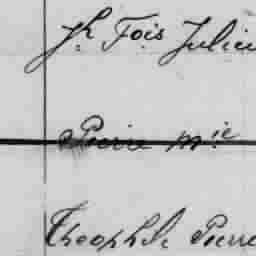 Jh. Fois Julien
Pierre Mie
Theophile Pierre